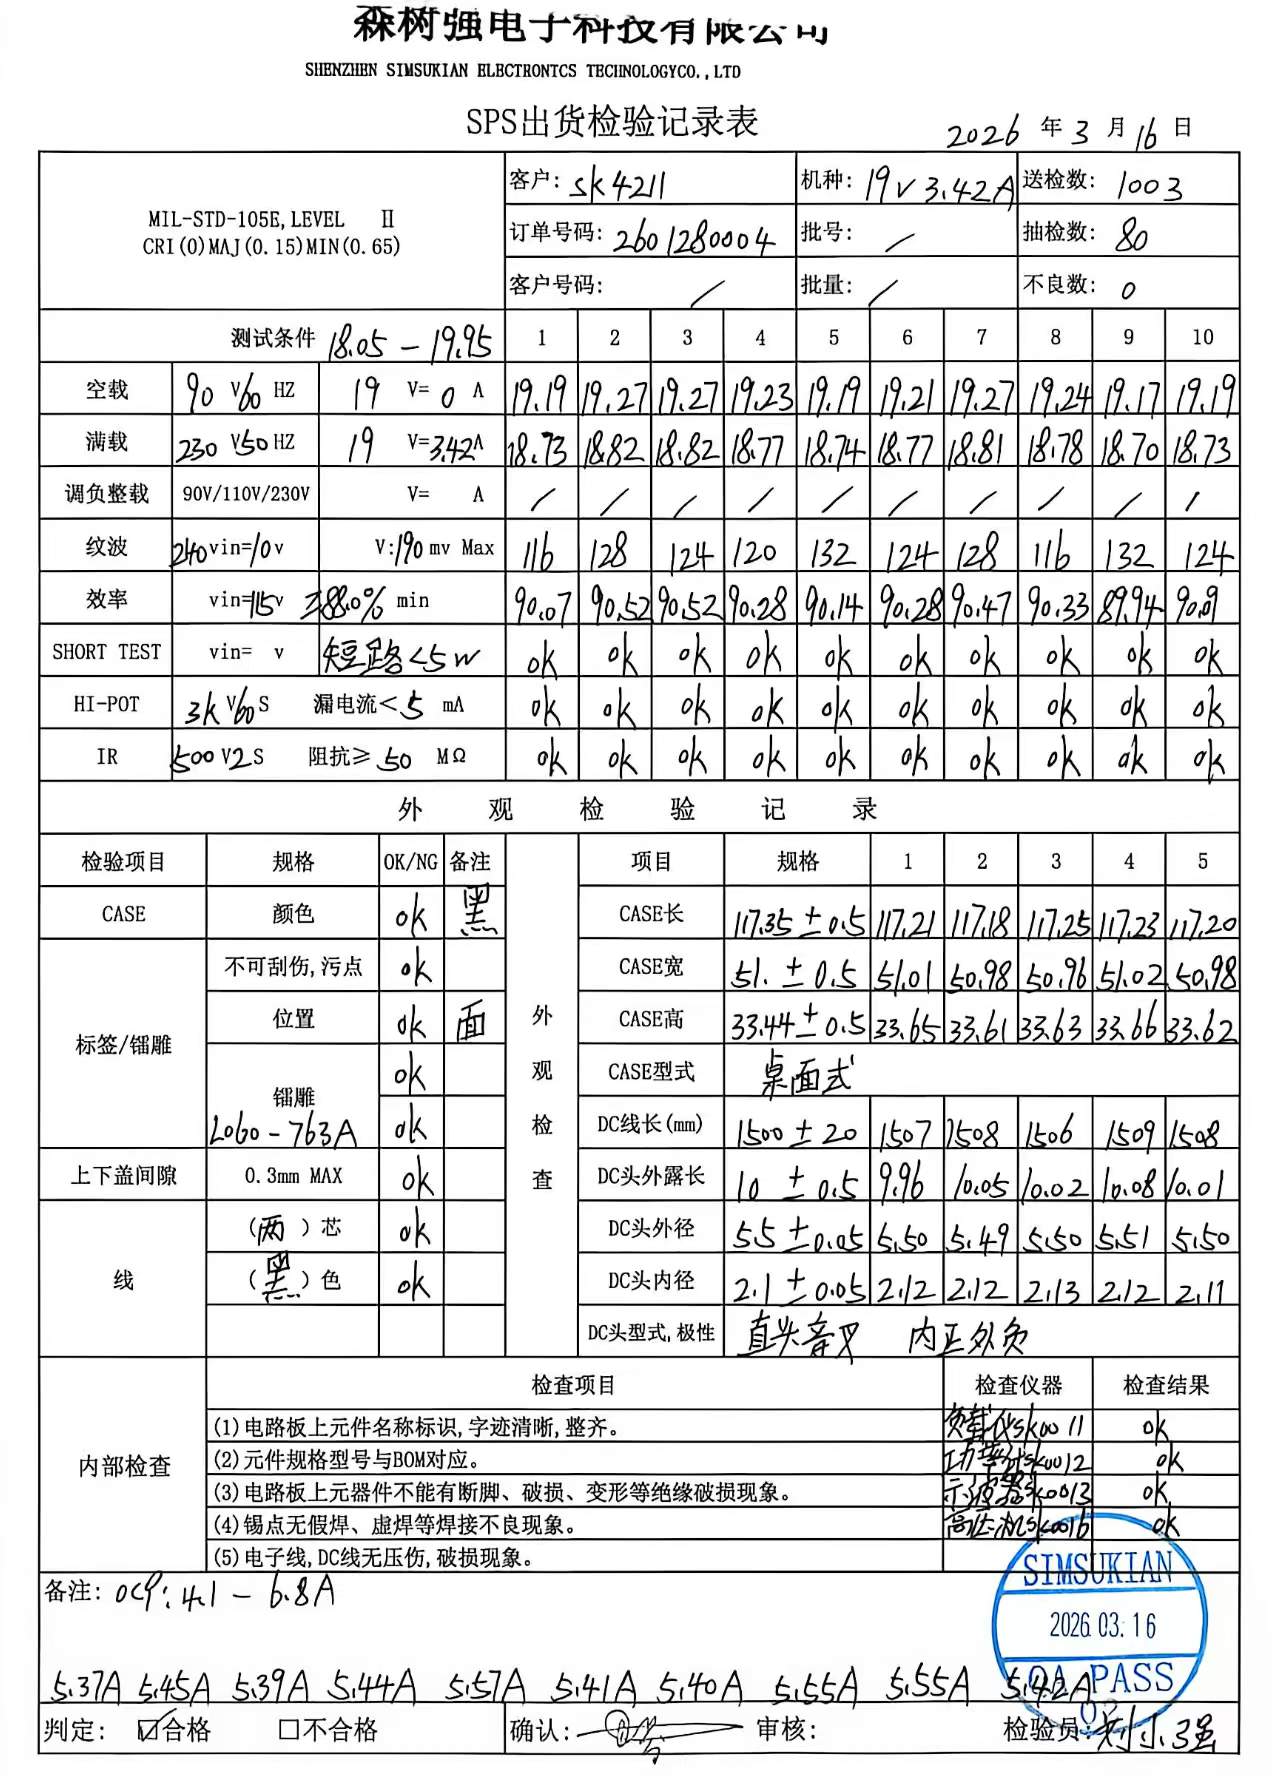 森树强电子科技有限公司
SHENZHEN SIMSUKIAN ELBCTRONTCS TBCINOLOGYCO.,LTD
SPS出货检验记录表
2026 年 3 月 16 日
MIL-STD-105E,LEVEL Ⅱ
CRI(0)MAJ(0.15)MIN(0.65)
客户: sk4211 机种: 19V 3.42A 送检数: 1003
订单号码: 2601280004 批号: / 抽检数: 80
客户号码: / 批量: / 不良数: 0
测试条件 18.05 - 19.95 1 2 3 4 5 6 7 8 9 10
空载 90 V 60 HZ 19 V= 0 A 19.19 19.27 19.27 19.23 19.19 19.21 19.27 19.24 19.17 19.19
满载 230 V 50 HZ 19 V= 3.42 A 18.73 18.82 18.82 18.77 18.74 18.77 18.81 18.78 18.70 18.73
调负整载 90V/110V/230V V= A / / / / / / / / / /
纹波 240 vin=10v V:190 mv Max 116 128 124 120 132 124 128 116 132 124
效率 vin=115v ≥88.0% min 90.07 90.52 90.52 90.28 90.14 90.28 90.47 90.33 89.94 90.09
SHORT TEST vin= v 短路<5W ok ok ok ok ok ok ok ok ok ok
HI-POT 3k V 60 S 漏电流< 5 mA ok ok ok ok ok ok ok ok ok ok
IR 500 V 2 S 阻抗≥ 50 MΩ ok ok ok ok ok ok ok ok ok ok
外 观 检 验 记 录
检验项目 规格 OK/NG 备注 项目 规格 1 2 3 4 5
CASE 颜色 ok 黑 CASE长 117.35 ±0.5 117.21 117.18 117.25 117.23 117.20
不可刮伤,污点 ok CASE宽 51. ± 0.5 51.01 50.98 50.96 51.02 50.98
标签/镭雕 位置 ok 面 外 CASE高 33.44 ± 0.5 33.65 33.61 33.63 33.66 33.62
ok 观 CASE型式 桌面式
镭雕 L060-763A ok 检 DC线长(mm) 1500 ± 20 1507 1508 1506 1509 1508
上下盖间隙 0.3mm MAX ok 查 DC头外露长 10 ± 0.5 9.96 10.05 10.02 10.08 10.01
(两)芯 ok DC头外径 5.5 ±0.05 5.50 5.49 5.50 5.51 5.50
线 (黑)色 ok DC头内径 2.1 ± 0.05 2.12 2.12 2.13 2.12 2.11
DC头型式,极性 直头音叉 内正外负
检查项目 检查仪器 检查结果
内部检查
(1)电路板上元件名称标识,字迹清晰,整齐。 负载仪sk0011 ok
(2)元件规格型号与BOM对应。 功率计sk0012 ok
(3)电路板上元器件不能有断脚、破损、变形等绝缘破损现象。 示波器sk0013 ok
(4)锡点无假焊、虚焊等焊接不良现象。 高压机sk0016 ok
(5)电子线,DC线无压伤,破损现象。
备注: OCP: 4.1 - 6.8A
SIMSUKIAN
2026.03.16
QA PASS
5.37A 5.45A 5.39A 5.44A 5.57A 5.41A 5.40A 5.55A 5.55A 5.42A
判定: ☑合格 □不合格 确认: 审核: 检验员: 刘小强